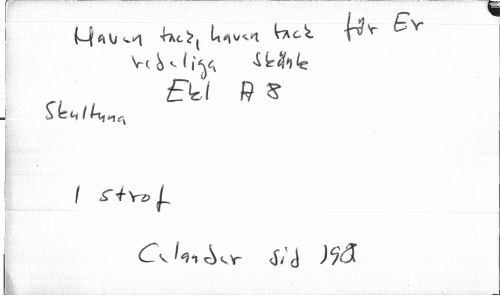 Haven tack, haven tack för Er
redeliga skänk
Ekl A 8
Skultuna
1 strof
Celander sid